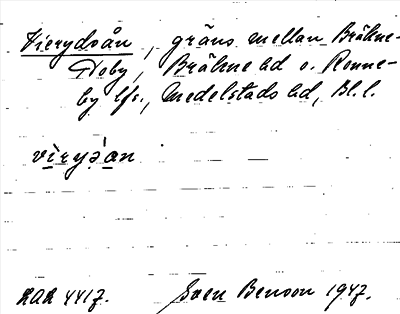 Vierydsån, gräns mellan Bräkne-
Hoby, Bräkne hd o. Ronne-
by lfs., Medelstads hd, Bl. l.
OAÅ 4417. Sven Benson 1947.